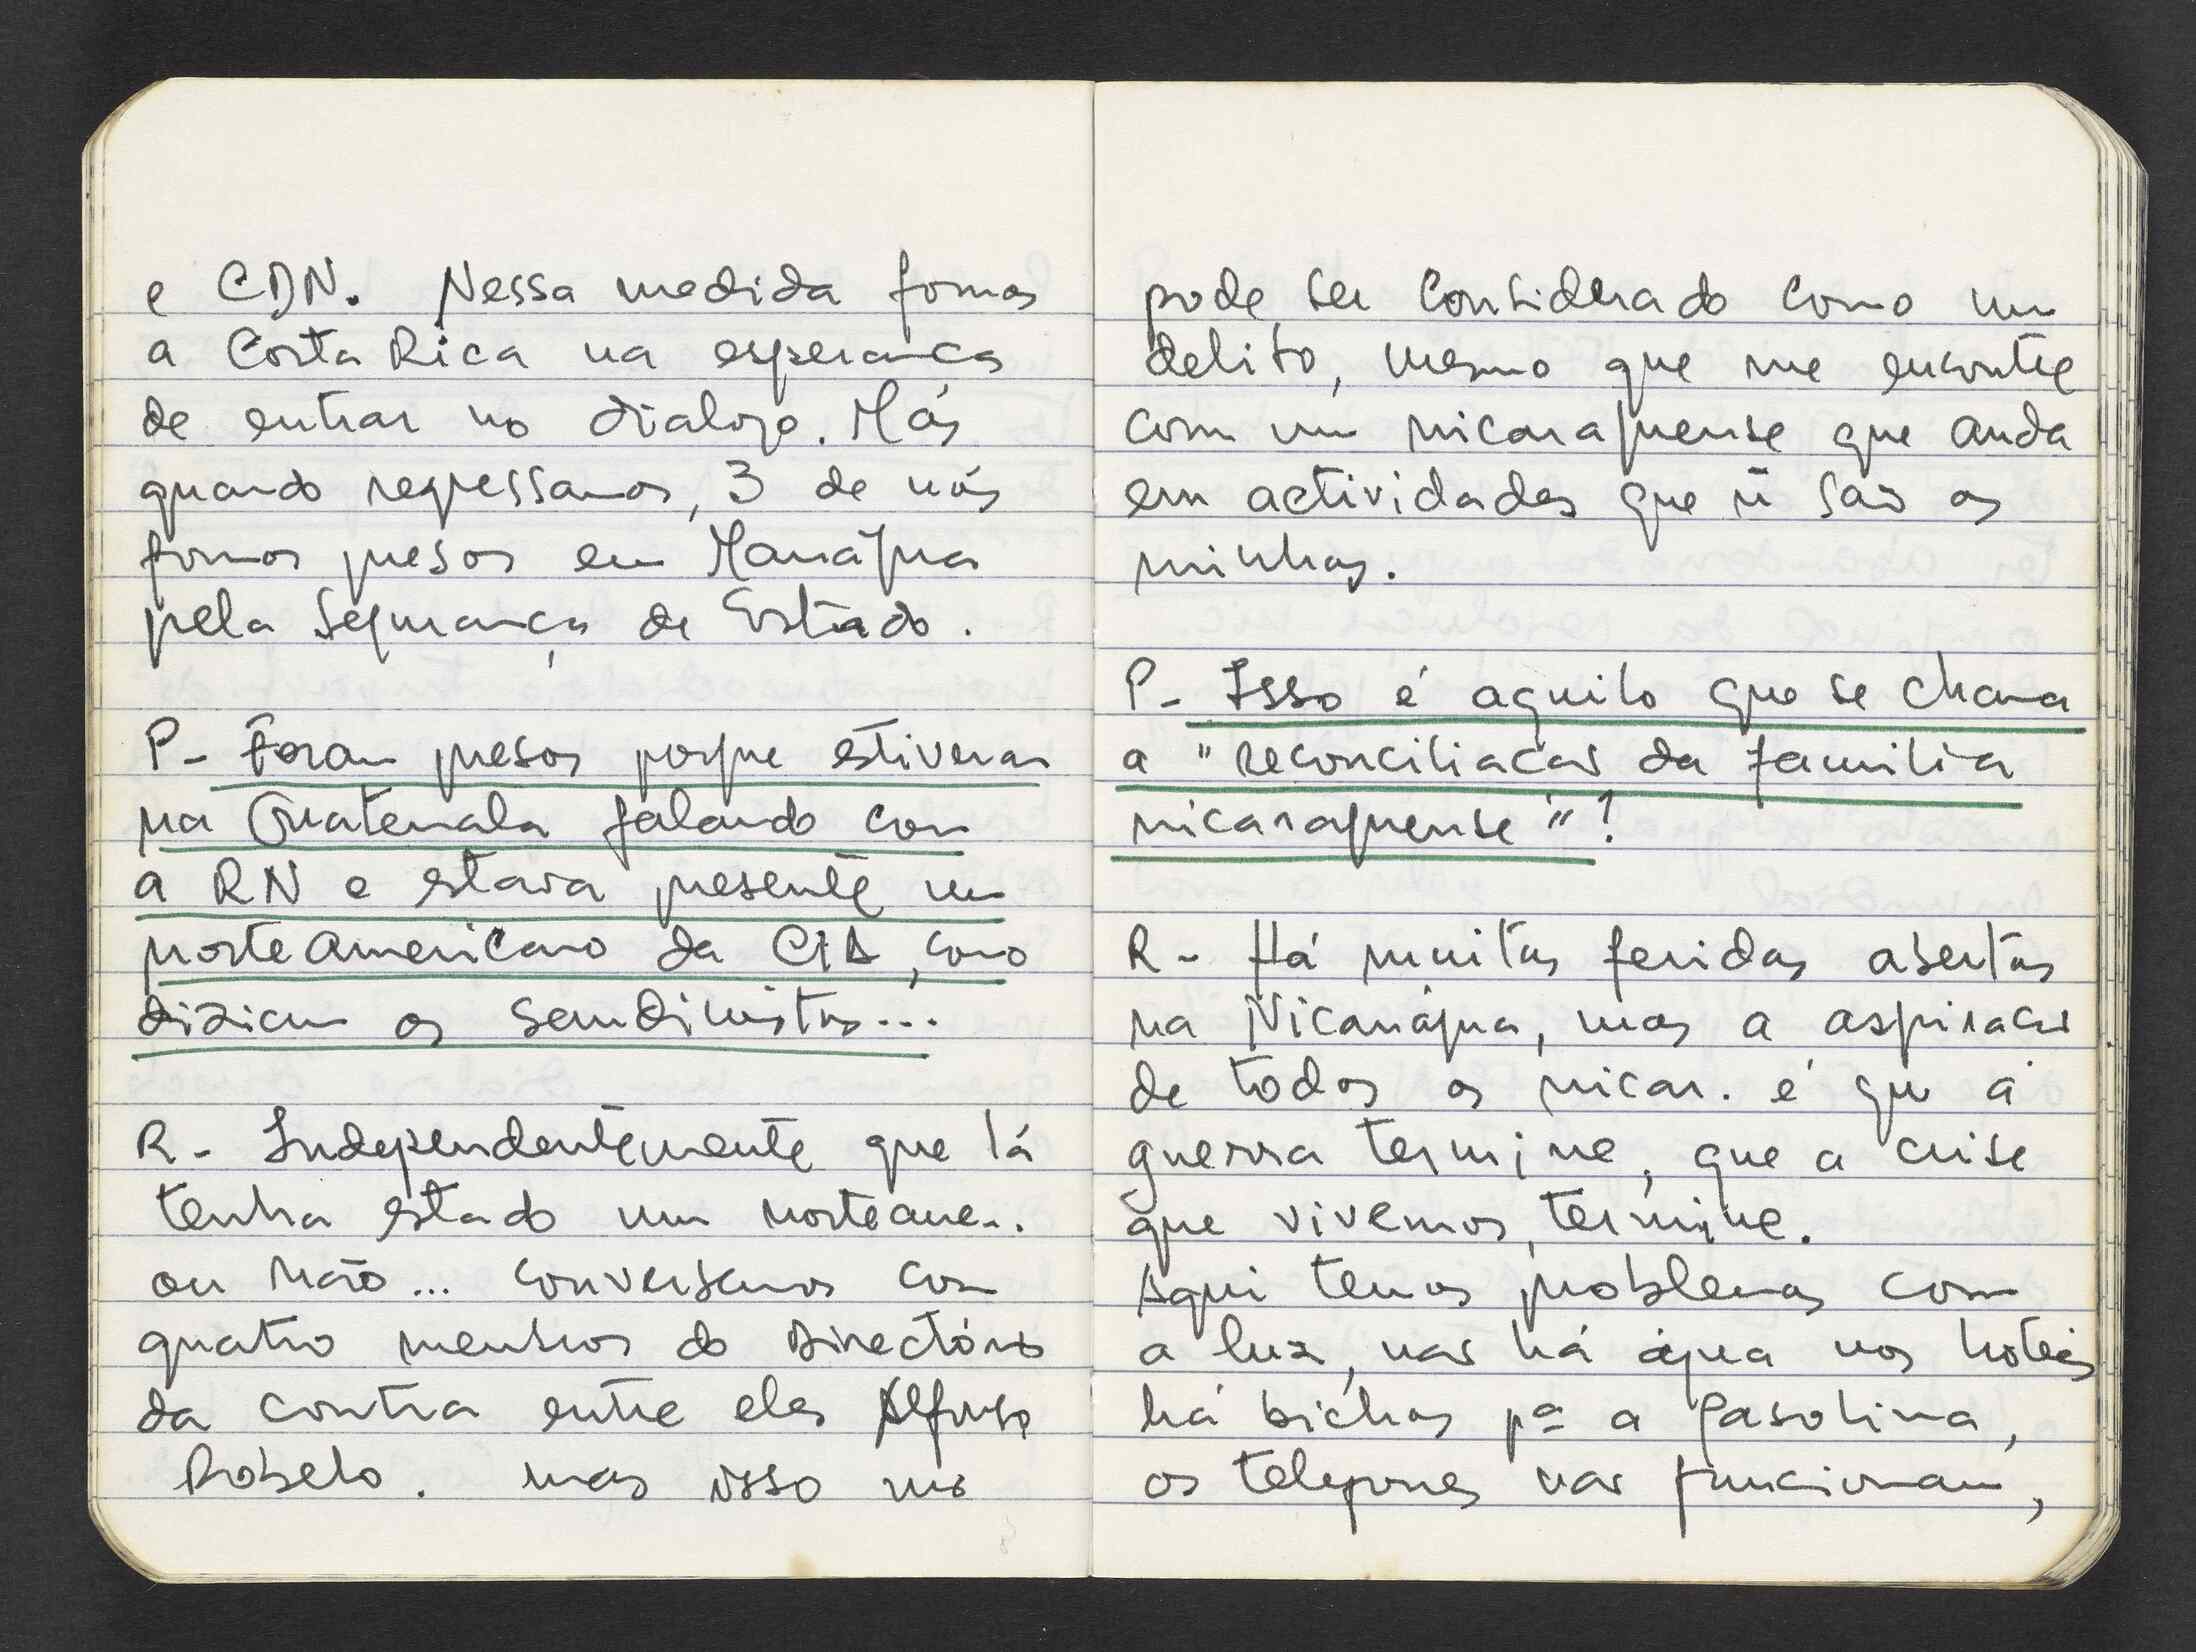 e CDN. Nessa medida fomos
a Costa Rica na esperança
de entrar no dialogo. Más
quando regressamos, 3 de nós
fomos presos em Manágua
pela Segurança de Estado.
P- Foram presos porque estiveram
na Guatemala falando com
a RN e estava presente um
norteamericano da CIA, como
diziam os sandinistas...
R- Independentemente que lá
tenha estado um norteame..
ou não... conversamos com
quatro membros do Directório
da contra entre eles Alfonso
Robelo. mas isso não
pode ser considerado como um
delito, mesmo que me encontre
com um nicaraguense que anda
em actividades que ñ são as
minhas.
P- Isso é aquilo que se chama
a "reconciliacão da familia
nicaraguense"?
R- Há muitas feridas abertas
na Nicarágua, mas a aspiracão
de todos os nicar. é que a
guerra termine, que a crise
que vivemos, termine.
Aqui temos problemas com
a luz, não há água nos hoteis
há bichas pª a gasolina,
os telefones não funcionam,